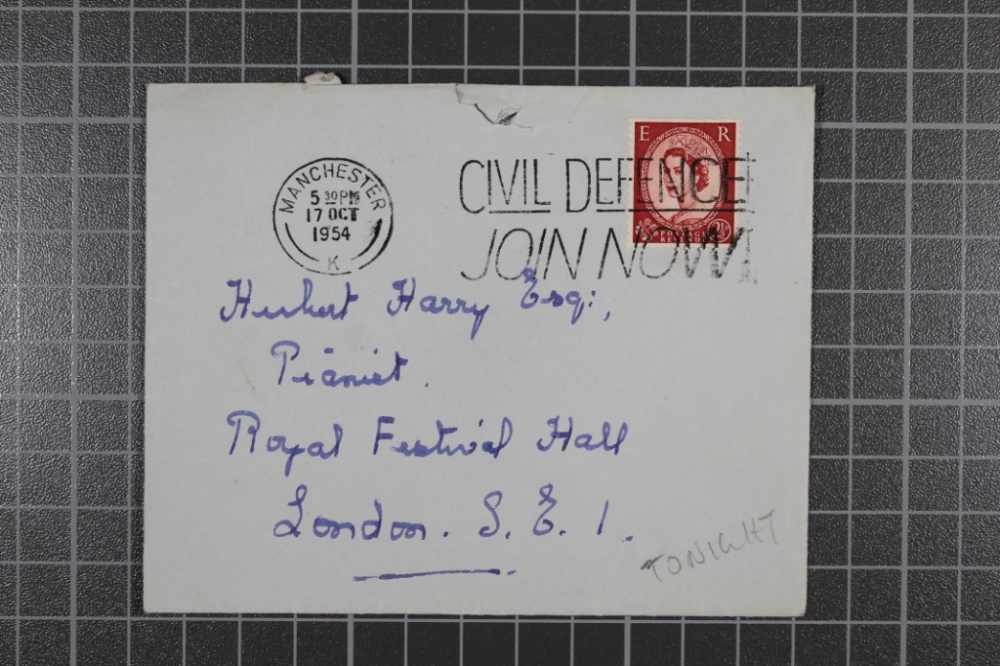 MANCHESTER
5 30 PM
17 OCT
1954
K
CIVIL DEFENCE
JOIN NOW!
E R
2½
Herbert Harry Esq:,
Pianist.
Royal Festival Hall
London. S. E. 1.
TONIGHT